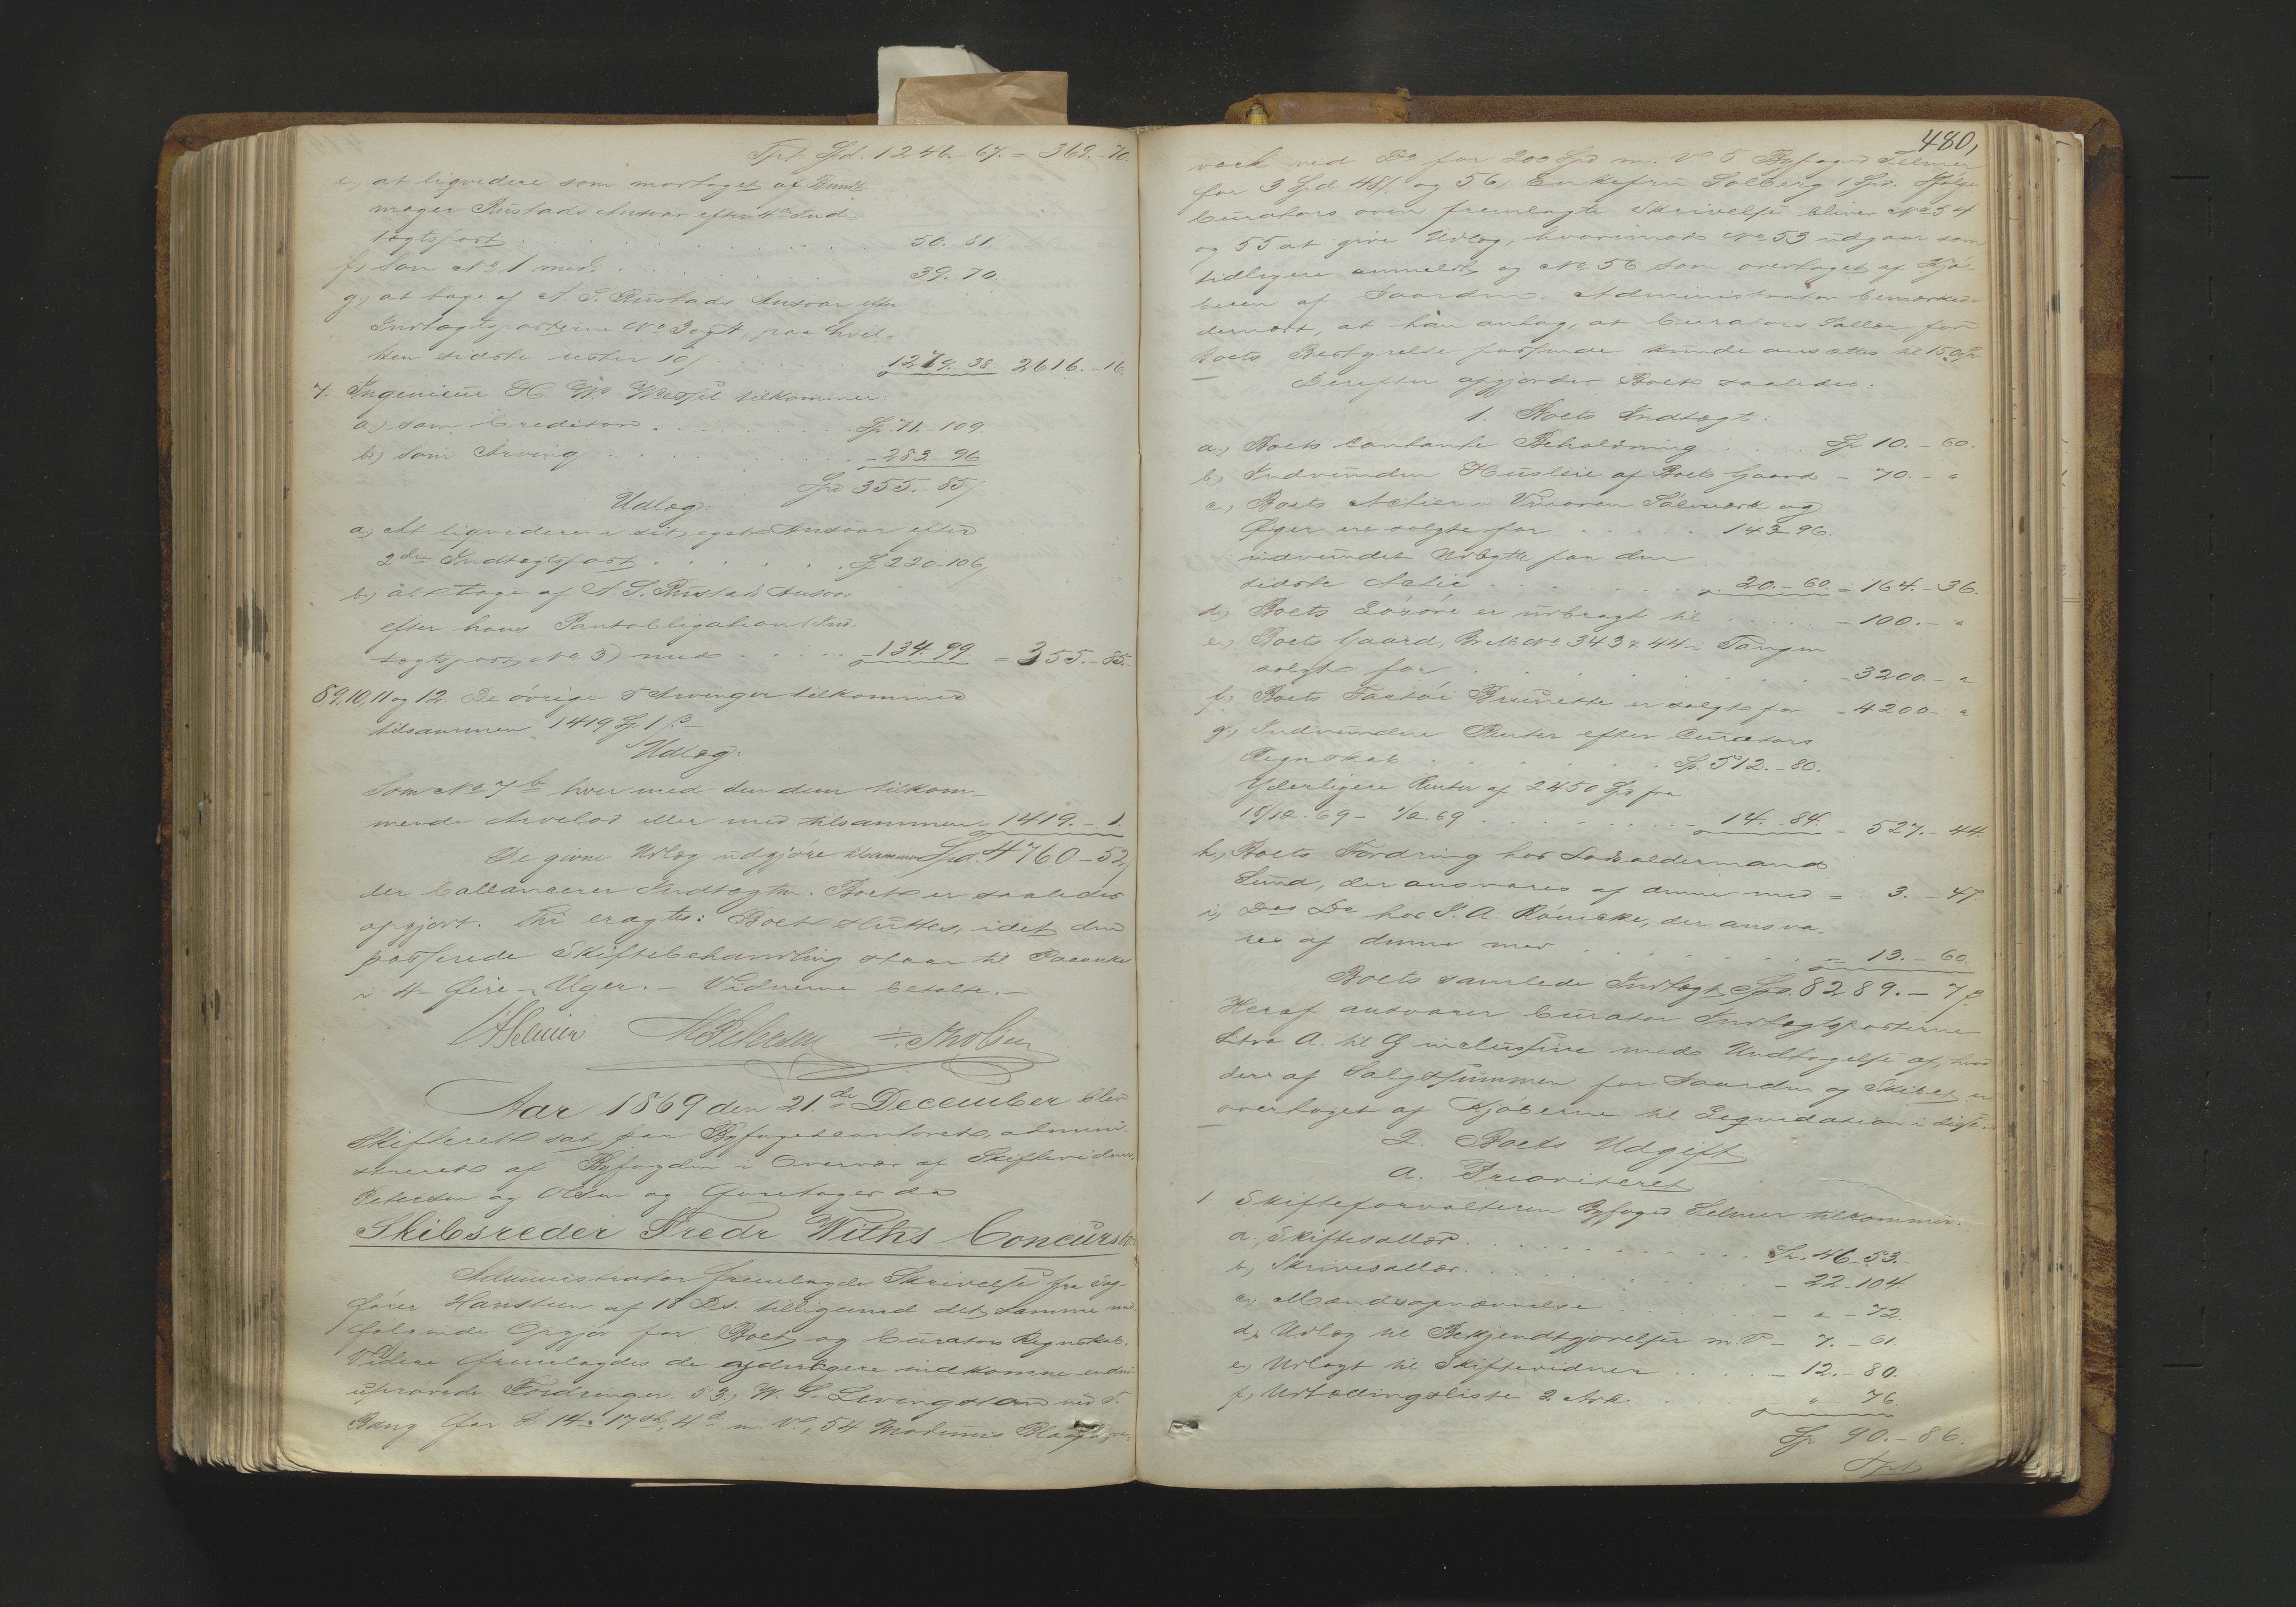 Tpt. Spd. 1246.-67. = 369.-70.
e, at liqvidere som modtaget af Bundt
mager Rustads Ansvar efter 4de Ind-
tægtspost . . . 50. 81.
f, Som No 1 med . . . 39. 70.
g, at tage af A. S. Rustads Ansvar efter
Indtægtsposterne No 3 og 4, paa hvil-
ken sidste rester 10 . . . 1279. 38 2616.-16.
7. Ingenieur H Wessel tilkommer:
a, som Creditor . . . Sp. 71.-109.
b, som Arving . . . - 283 96
Spd 355.-85
Udlæg:
a, At liqvidere i sit eget Ansvar efter
2den Indtægtspost . . . Sp 220-106,
b, at tage af A. S. Rustads Ansvar
efter hans Pantobligation (Ind-
tægtspost No 3) med . . . -134. 99 = 355.-85.
8, 9, 10, 11 og 12. De øvrige 5 Arvinger tilkommer
tilsammen 1419 Sp 1 s
Udlæg:
Som No 7 b hver med den dem tilkom-
mende Arvelod eller med tilsammen 1419.-1.
De givne Udlæg udgjøre tilsammen Spd. 4760-52,
der ballancerer Indtægten. Boet er saaledes
opgjort. Thi eragtes: Boet sluttes, idet den
passerede Skiftebehandling staar til Paaanke
i 4 - fire - Uger. - Vidnerne betalte. -
Selmer Petersen Olsen
Aar 1869 den 21de December blev
Skifteret sat paa Byfogedcontoret, admini-
streret af Byfogden i Overvær af Skiftevidner
Petersen og Olsen og foretoges da
Skibsreder Fredr Withs Concursbo
Administrator fremlagde Skrivelse fra Sag-
fører Hansteen af 18 Ds. tilligemed det samme med-
følgende Opgjør for Boet og Curators Regnskab.
Videre fremlagdes de yderligere indkomne endnu
uprøvede Fordringer. 53, W. S. Levingston ved S.
Bang for £ 14 " 17 sh, 4 d m. V., 54 Modums Blaafarve-
480,
værk ved Do for 200 Spd m. V. 5 Byfoged Selmer
for 3 Spd 48 s og 56, Enkefru Solberg 1 Spd. Ifølge
Curators oven fremlagte Skrivelse bliver No 54
og 55 at give Udlæg, hvorimod No 53 udgaar som
tidligere anmeldt og No 56 som overtaget af Kjø-
beren af Gaarden. Administrator bemærkede
dernæst, at han antog, at Curators Sallær for
Boets Bestyrelse passende kunde ansættes til 150 Spd.
Derefter opgjordes Boet saaledes:
1. Boets Indtægt:
a, Boets contante Beholdning . . . Sp 10.-60.
b, Indvunden Husleie af Boets Gaard - 70.- "
c, Boets Actier i Vinoren Sølvværk og
Øger ere solgte for . . . 143-96.
indvundet Udbytte paa den
sidste Actie . . . 20.-60. = 164.-36.
d, Boets Løsøre er udbragt til . . . - 100.- "
e, Boets Gaard, Br. No 343 & 44 i Tangen
solgt for . . . - 3200.- "
f, Boets Fartøi Brunette er solgt for - 4200- "
g, Indvundne Renter efter Curators
Regnskab . . . Sp. 512.-80.
Yderligere Renter af 2450 Spd fra
18/10.69 - 1/12.69 . . . - 14. 84 = 527.-44.
h, Boets Fordring hos Lodsoldermand
Lund, der ansvares af denne med = 3.-47.
i, Dos Do hos J. A. Römcke, der ansva-
res af denne med . . . = 13.-60.
Boets samlede Indtægt Spd. 8289.-7 s.
Heraf ansvarer Curator Indtægtsposterne
Litra A. til G inclusive med Undtagelse af, hvad
der af Salgssummen for Gaarden og Skibet er
overtaget af Kjøberne til Liqvidation i disse.
2. Boets Udgift
a. Prioriteret
1. Skifteforvalteren Byfoged Selmer tilkommer:
a, Skiftesallær . . . Sp. 46-53.-
b, Skrivesallær . . . - 22-104.
c, Mændsopnævnelse . . . - " - 72.
d, Udlæg til Bekjendtgjørelser m. V. - 7.-61.
e, Udlagt til Skiftevidner . . . - 12.-80.
f, Udlodningsliste 2 Ark . . . " - 76.
Sp 90.-86.
Tpt